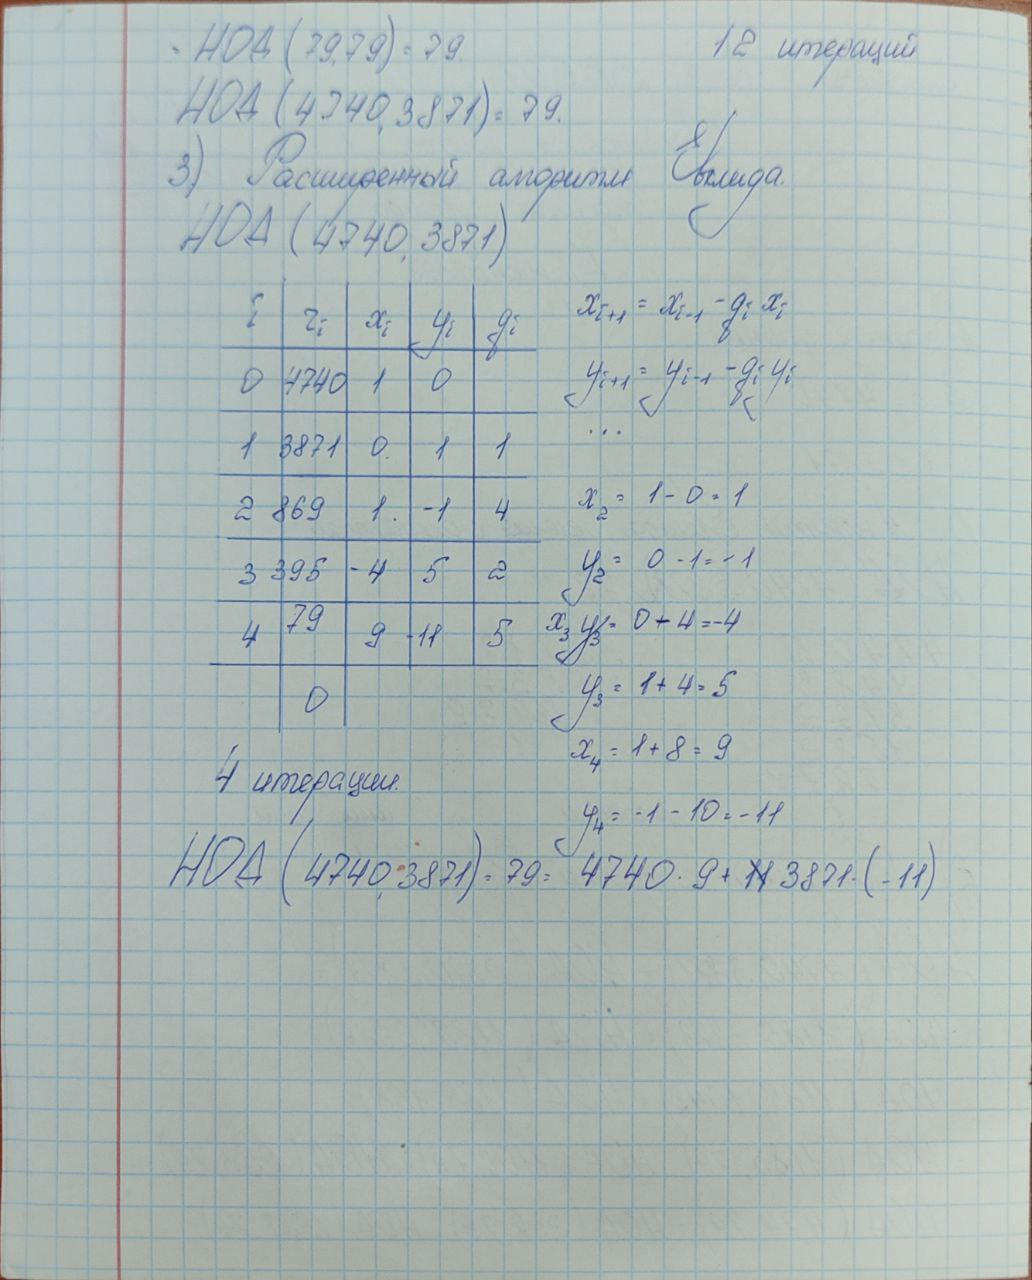 НОД (79,79) = 79. 12 итераций
НОД (4740,3871) = 79.
3) Расширенный алгоритм Евклида.
НОД (4740,3871)
i rᵢ xᵢ yᵢ qᵢ
0 4740 1 0
1 3871 0 1 1
2 869 1 -1 4
3 395 -4 5 2
4 79 9 -11 5
0
xᵢ₊₁ = xᵢ₋₁ - qᵢ xᵢ
yᵢ₊₁ = yᵢ₋₁ - qᵢ yᵢ
...
x₂ = 1 - 0 = 1
y₂ = 0 - 1 = -1
x₃ = 0 + 4 = -4
y₃ = 1 + 4 = 5
x₄ = 1 + 8 = 9
y₄ = -1 - 10 = -11
4 итерации.
НОД (4740,3871) = 79 = 4740 · 9 + 3871 · (-11)